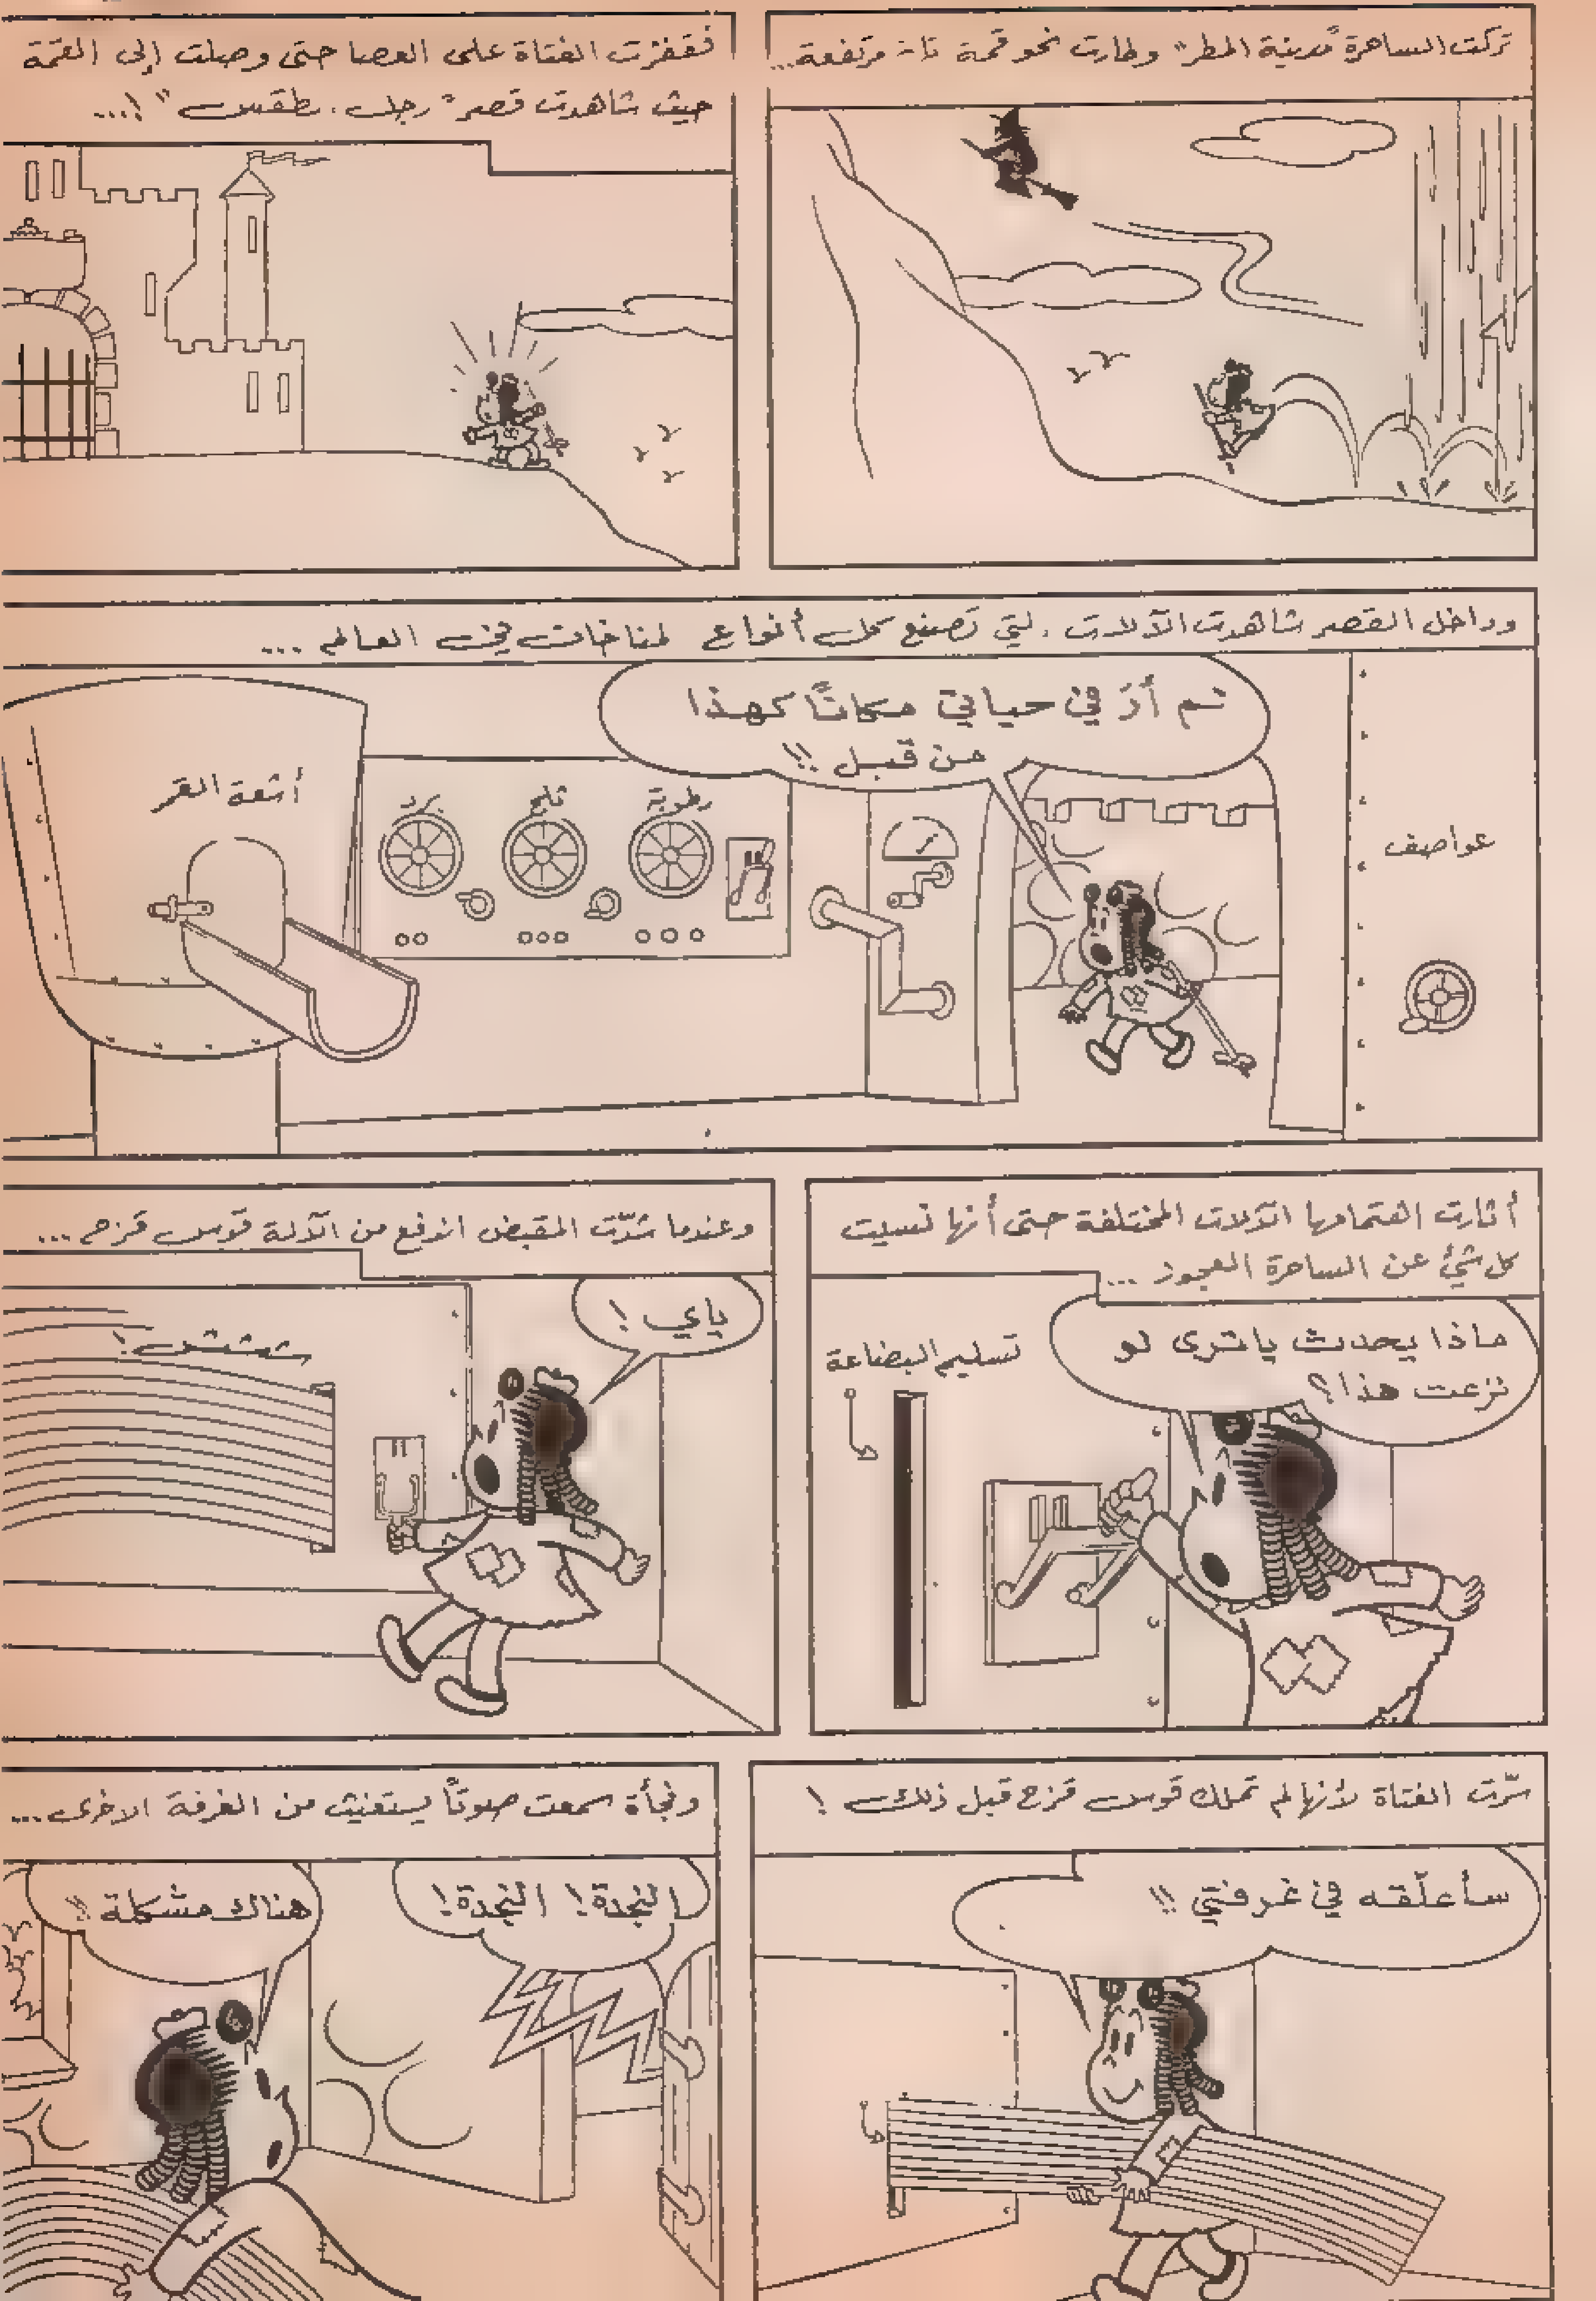 تركت الساحرة "مدينة المطر" وطارت نحو قمة مرتفعة...
فقفزت الفتاة على العصا حتى وصلت إلى القمة
حيث شاهدت قصر "رجل الطقس"!...
وداخل القصر شاهدت الآلات التي تصنع كل أنواع المناخات في العالم ...
لم أرَ في حياتي مكانًا كهذا
من قبل !!
عواصف
رطوبة
ثلج
برد
أشعة القمر
أثارت اهتمامها الآلات المختلفة حتى أنها نسيت
كل شئ عن الساحرة العجوز ...
ماذا يحدث يا ترى لو
نزعت هذا؟
تسليم البضاعة
وعندما شدّت المقبض اندفع من الآلة قوس قزح ...
ياي !
شششش !
سرّت الفتاة لأنها لم تملك قوس قزح قبل ذلك !
سأعلّقه في غرفتي !!
وفجأة سمعت صوتاً يستغيث من الغرفة الاخرى ...
النجدة ! النجدة !
هناك مشكلة !!